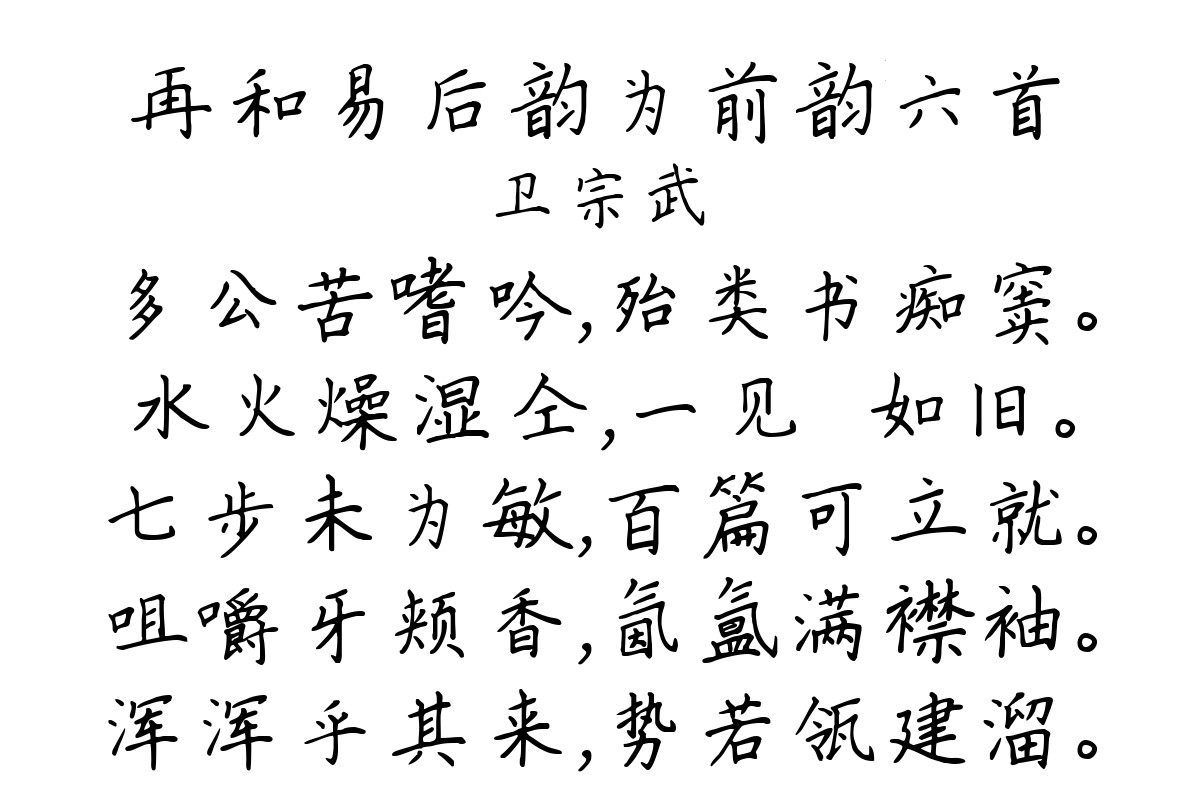 再和易后韵为前韵六首
卫宗武
多公苦嗜吟,殆类书痴窦。
水火燥湿仝,一见 如旧。
七步未为敏,百篇可立就。
咀嚼牙颊香,氤氲满襟袖。
浑浑乎其来,势若瓴建溜。